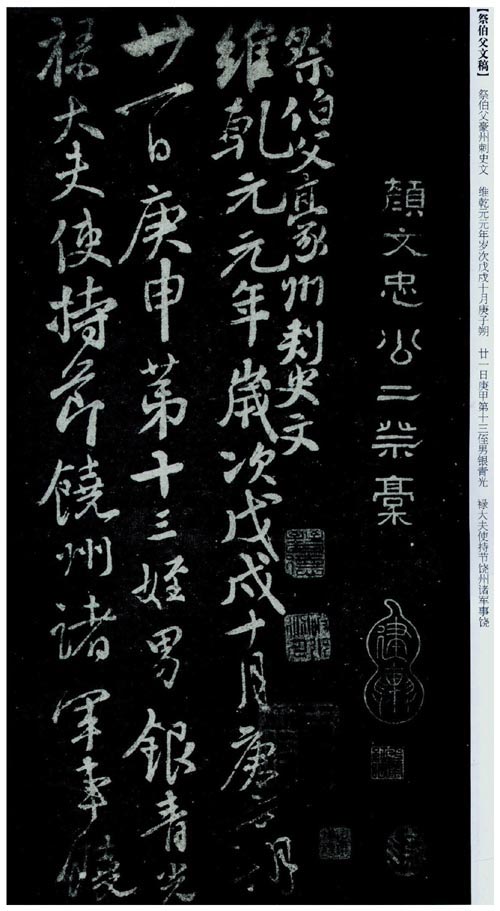 【祭伯父文稿】 祭伯父豪州刺史文 维乾元元年岁次戊戌十月庚子朔 廿一日庚甲第十三侄男银青光 禄大夫使持节饶州诸军事饶
顏文忠公二祭稾
祭伯父豪州刾史文
維乾元元年歲次戊戌十月庚子朔
廿一日庚申第十三姪男銀青光
祿大夫使持節饒州諸軍事饒